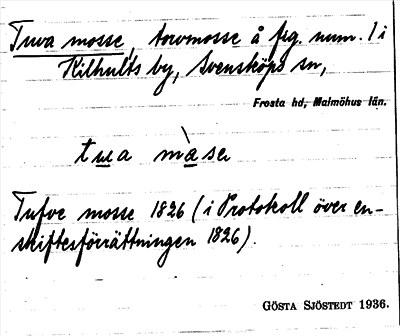 Tuva mosse, torvmosse å fig. num. 1 i
Kilhults by, Svensköps sn,
Frosta hd, Malmöhus län.
tua màse
Tufve mosse 1826 (i Protokoll över en-
skiftesförrättningen 1826).
GÖSTA SJÖSTEDT 1936.